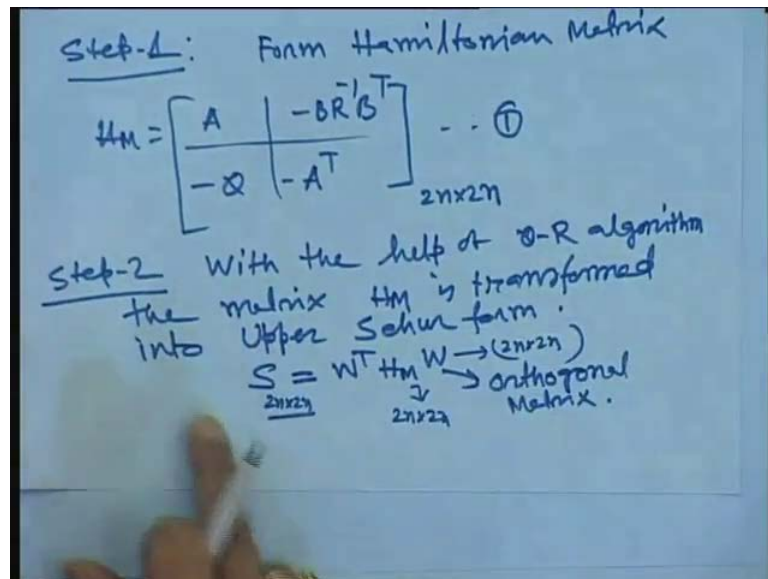 Step-1: Form Hamiltonian Matrix
HM = [ A | -BR⁻¹Bᵀ
-Q | -Aᵀ ] 2n×2n -- ①
Step-2 With the help of Q-R algorithm
the matrix HM is transformed
into Upper Schur form.
S = Wᵀ HM W → (2n×2n)
2n×2n ↓ 2n×2n → orthogonal
Matrix.